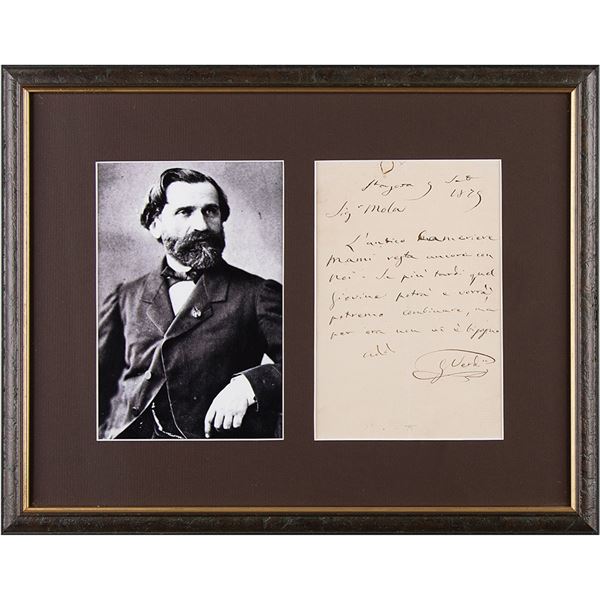 9 Sett 1879
Sig.r Mola
L'antico Cameriere
Mami resta ancora con
noi. Se più tardi quel
giovine potrà e vorrà,
potremo combinare, ma
per ora non vi è bisogno
add
G Verdi